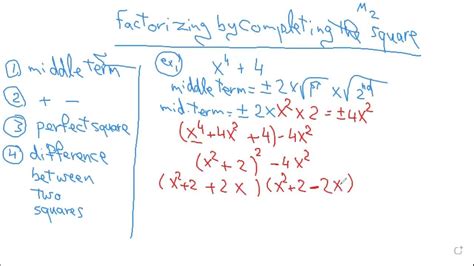 M2
Factorizing by Completing the square
① middle term
② + -
③ perfect square
④ difference
between
two
squares
ex1 x⁴ + 4
middle term = ± 2 x √1st x √2nd
mid-term = ± 2 x x² x 2 = ± 4x²
(x⁴ + 4x² + 4) - 4x²
(x² + 2)² - 4x²
(x² + 2 + 2x)(x² + 2 - 2x)